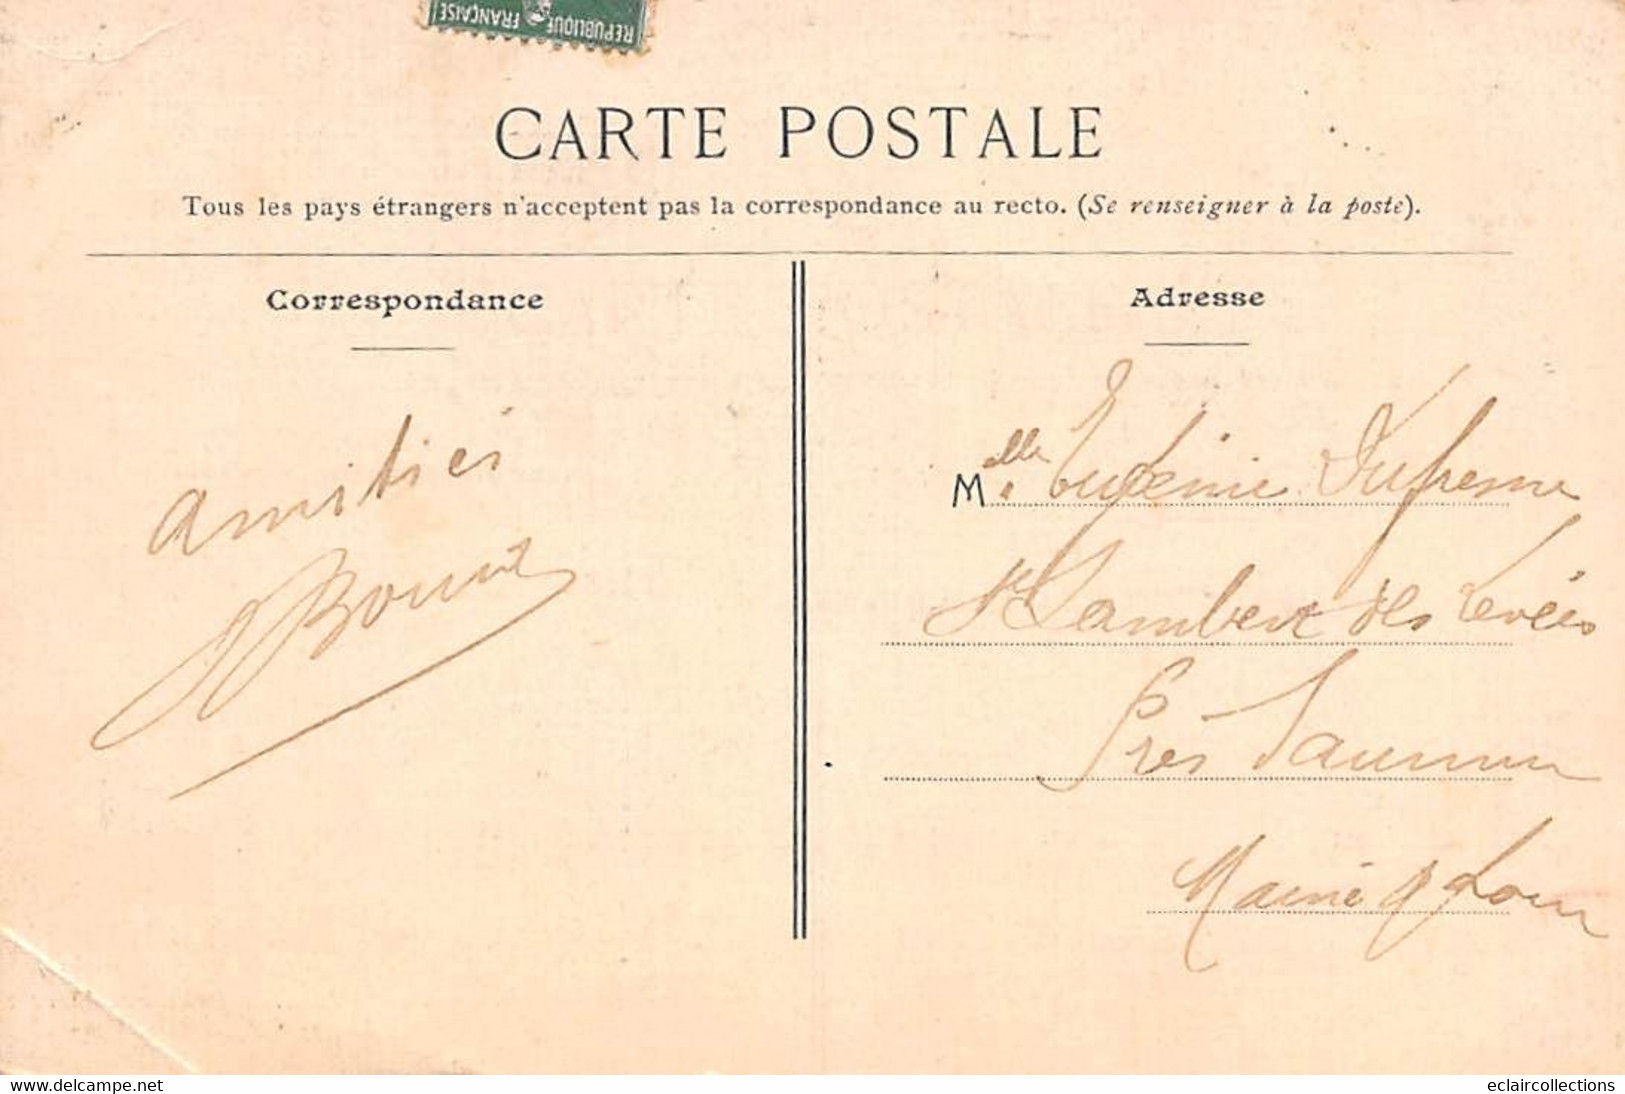 REPUBLIQUE FRANÇAISE
CARTE POSTALE
Tous les pays étrangers n'acceptent pas la correspondance au recto. (Se renseigner à la poste).
Correspondance
amitiés
Adresse
Mlle Eugénie Dufresne
St Lambert des Levées
Près Saumur
Maine & Loire
www.delcampe.net
eclaircollections